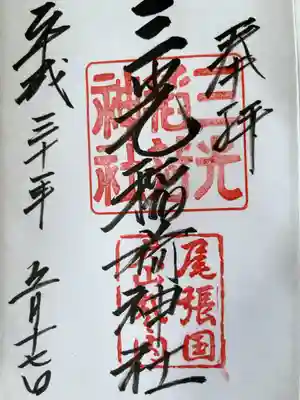 奉拝
三光稲荷神社
平成三十年 五月十七日
三光
稲荷
神社
尾張国